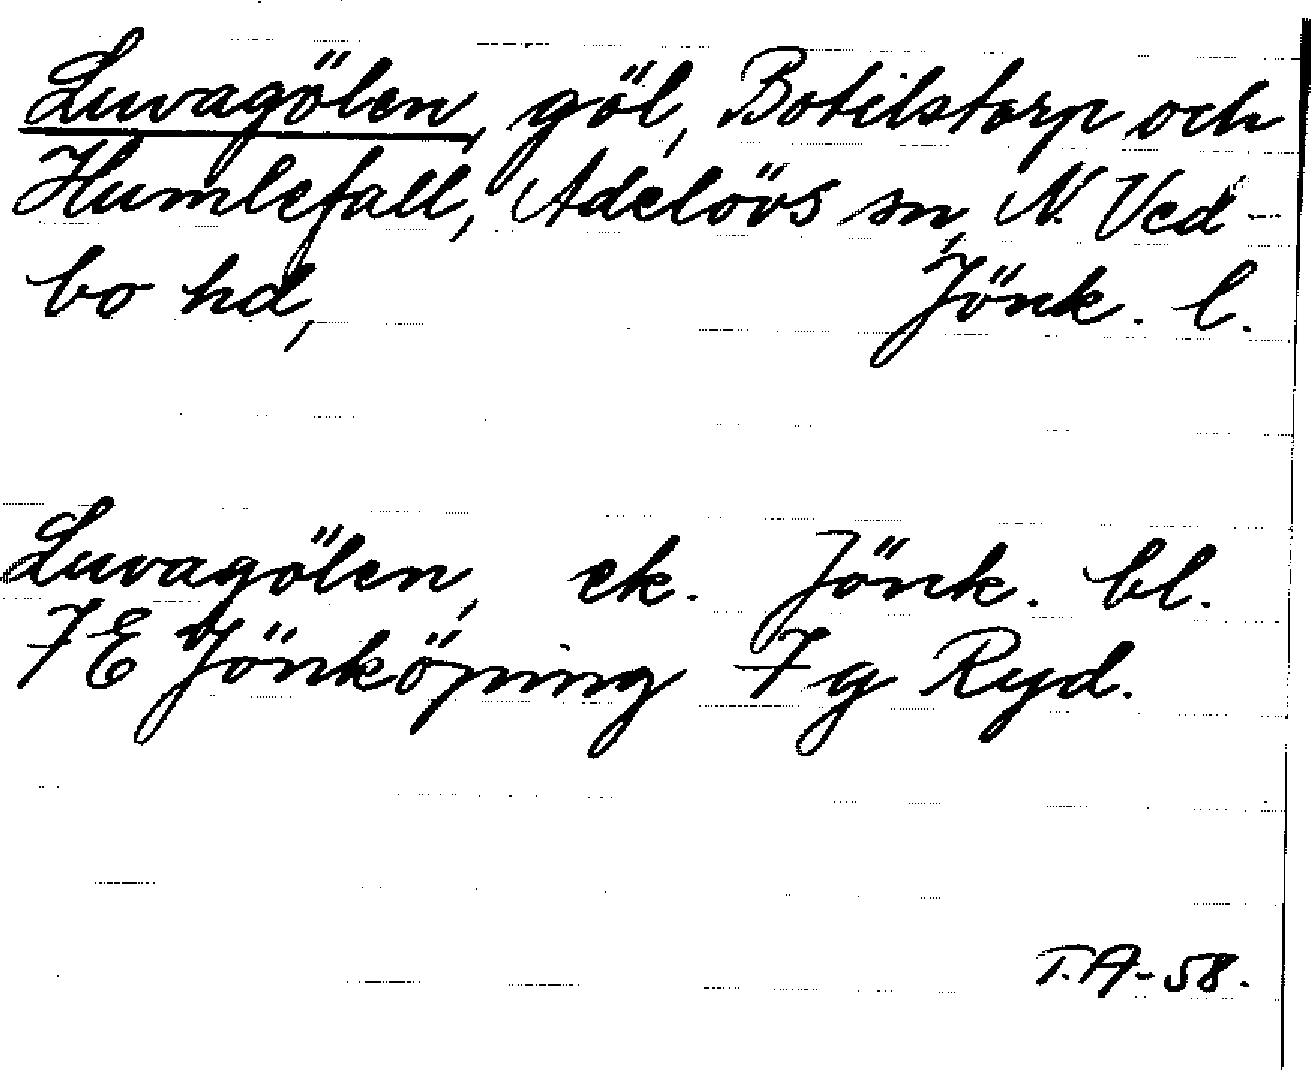 Luvagölen, göl, Botilstorp och
Humlefall, Adelövs sn, N. Ved-
bo hd, Jönk. l.
Luvagölen, ek. Jönk. bl.
7E Jönköping 7g Ryd.
T.A-58.